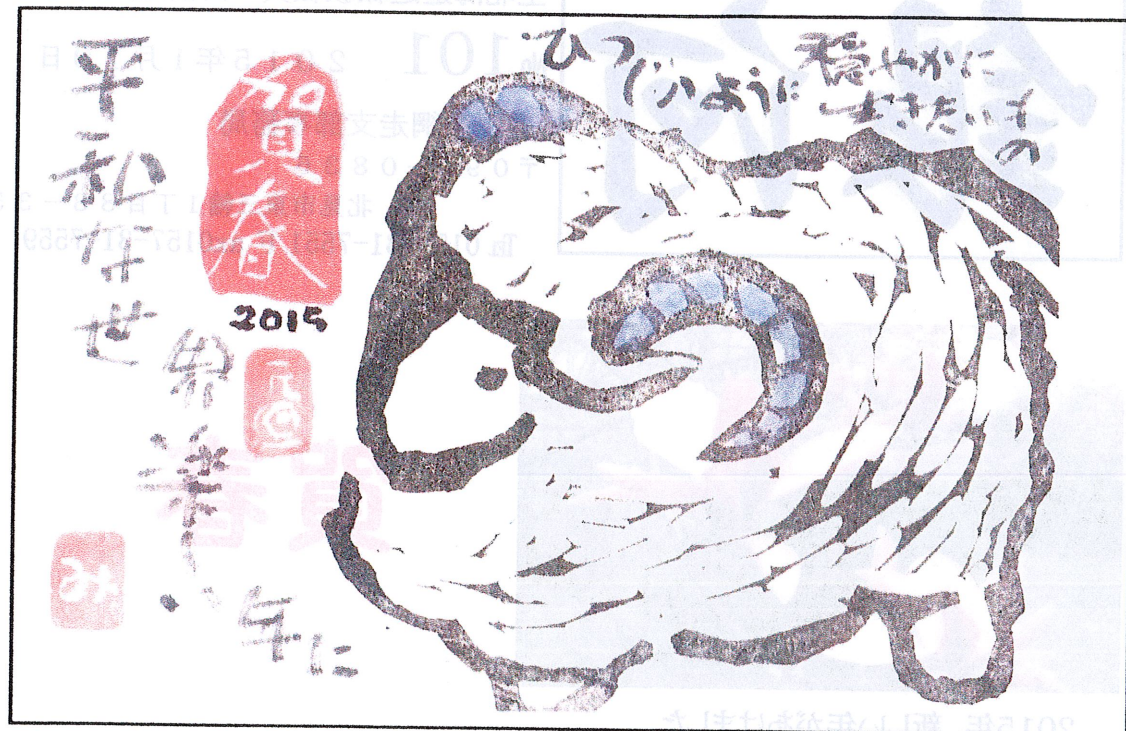 ひつじのように
穏やかに
生きたいもの
賀春
2015
平和な世
界
楽しい
年に
み